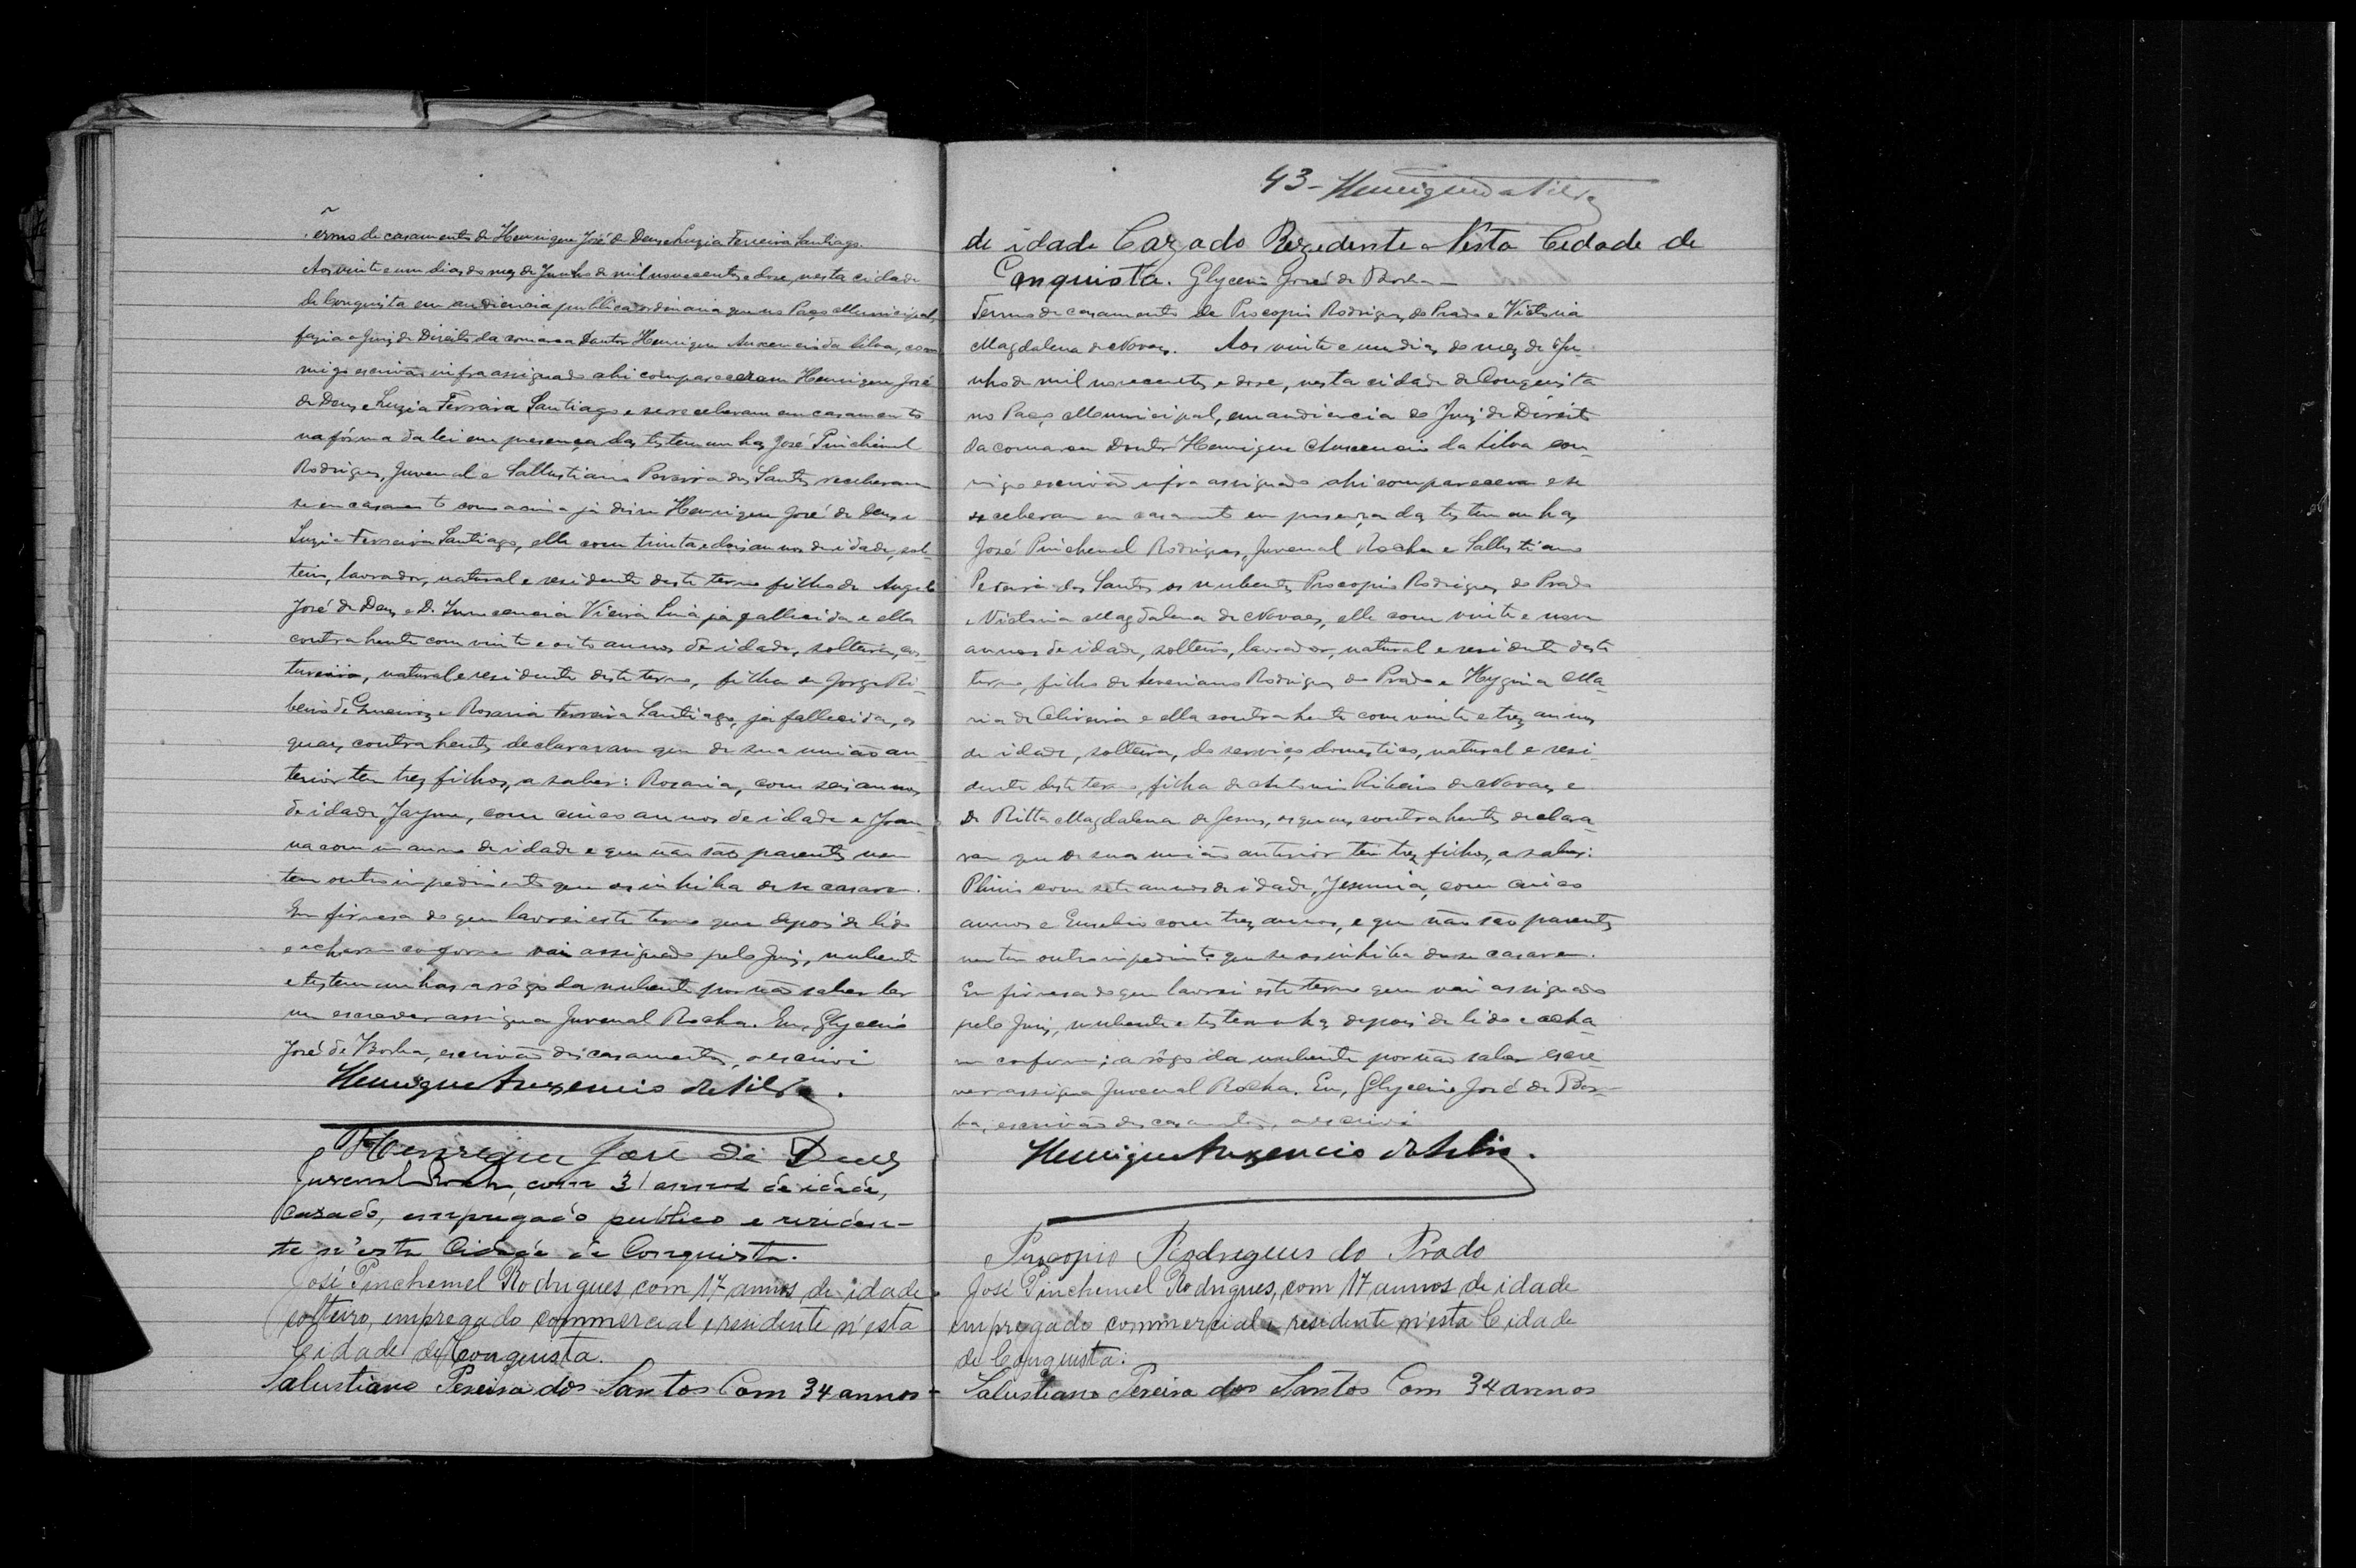 Termo de casamento de Henrique José de Deus e Luzia Ferreira Santiago.
Aos vinte e um dias do mez de Junho de mil novecentos e dose, nesta cidade
de Conquista em audiencia publica ordinaria que no Paço Municipal,
fazia o Juiz de Direito da comarca Doutor Henrique Auxencio da Silva, com-
migo escrivão infra assignado ahi compareceram Henrique José
de Deus e Luzia Ferreira Santiago e se receberam em casamento
na fórma da lei em presença das testemunhas José Pinchemel
Rodrigues, Juvenal e Sallustiano Pereira dos Santos receberam
se em casamento como acima já disse Henrique José de Deus e
Luzia Ferreira Santiago, elle com trinta e dois annos de idade, sol-
teiro, lavrador, natural e residente deste termo filho de Angelo
José de Deus e D. Innocencia Vieira Lima já fallecida e ella
contrahente com vinte e oito annos de idade, solteira, cos-
tureira, natural e residente deste termo, filha de Jorge Ri-
beiro de e Rosaria Ferreira Santiago, já fallecida, os
quaes contrahentes declararam que de sua união an-
terior tem trez filhos, a saber: Rosaria, com seis annos
de idade, Jayme, com cinco annos de idade e Joan-
na com um anno de idade e que não são parentes nem
tem outro impedimento que os inhiba de se casarem.
Em firmesa do que lavrei este termo que depois de lido
e acharem conforme vai assignado pelo Juiz, nubente
e testemunhas a rôgo da nubente por não saber ler
nem escrever assigna Juvenal Rocha. Eu, Glycerio
José de Borba, escrivão dos casamentos, o escrivi
Henrique Auxencio da Silva.
Henrique José de Deus
Juvenal Rocha, com 31 annos de idade,
Casado, empregado publico e residen-
te n'esta Cidade de Conquista.
José Pinchemel Rodrigues com 17 annos de idade
solteiro, empregado commercial e residente n'esta
Cidade de Conquista.
Salustiano Pereira dos Santos Com 34 annos
43 - Henrique da Silva
de idade Cazado Rezedente Nesta Cedade de
Conquista. Glycerio José de Borba
Termo de casamento de Procopio Rodrigues do Prado e Victoria
Magdalena de Novaes. Aos vinte e um dias do mez de Ju-
nho de mil novecentos e dose, nesta cidade de Conquista
no Paço Municipal, em audiencia do Juiz de Direito
da comarca Doutor Henrique Auxencio da Silva com-
migo escrivão infra assignado ahi compareceram e se
receberam em casamento em presença das testemunhas
José Pinchemel Rodrigues, Juvenal Rocha e Sallustiano
Pereira dos Santos os nubentes Procopio Rodrigues do Prado
e Victoria Magdalena de Novaes, elle com vinte e nove
annos de idade, solteiro, lavrador, natural e residente deste
termo, filho de Severiano Rodrigues do Prado e Hygina Ma-
ria de Oliveira e ella contrahente com vinte e trez annos
de idade, solteira, do serviço domestico, natural e resi-
dente deste termo, filha de Antonio Ribeiro de Novaes e
D. Ritta Magdalena de Jesus, os quaes contrahentes declara-
ram que de sua união anterior têm trez filhos, a saber:
Plinio com sete annos de idade, Jesuina, com cinco
annos e Eusebio com trez annos, e que não são parentes
nem tem outro impedimento que se os inhiba de se casarem.
Em firmesa do que lavrei este termo que vai assignado
pelo Juiz, nubente e testemunhas depois de lido e acha-
rem conforme; a rôgo da nubente por não saber escre-
ver assigna Juvenal Rocha. Eu, Glycerio José de Bor-
ba, escrivão dos casamentos, o escrivi
Henrique Auxencio da Silva.
Procopio Rodregeus do Prado
José Pinchemel Rodrigues, com 17 annos de idade
empregado commercial e residente n'esta Cidade
de Conquista.
Salustiano Pereira dos Santos Com 34 annos